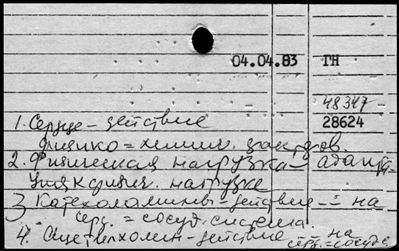 04.04.83 ГН
48347
28624
1. Сердце – действие
физико = химич. факторов.
2. Физическая нагрузка – адап
ция к физич. нагрузке
3) Катехоламины – действие – на
серд. = сосуд. система.
4. Ацетилхолин – действие – на
серд. = сосуд.